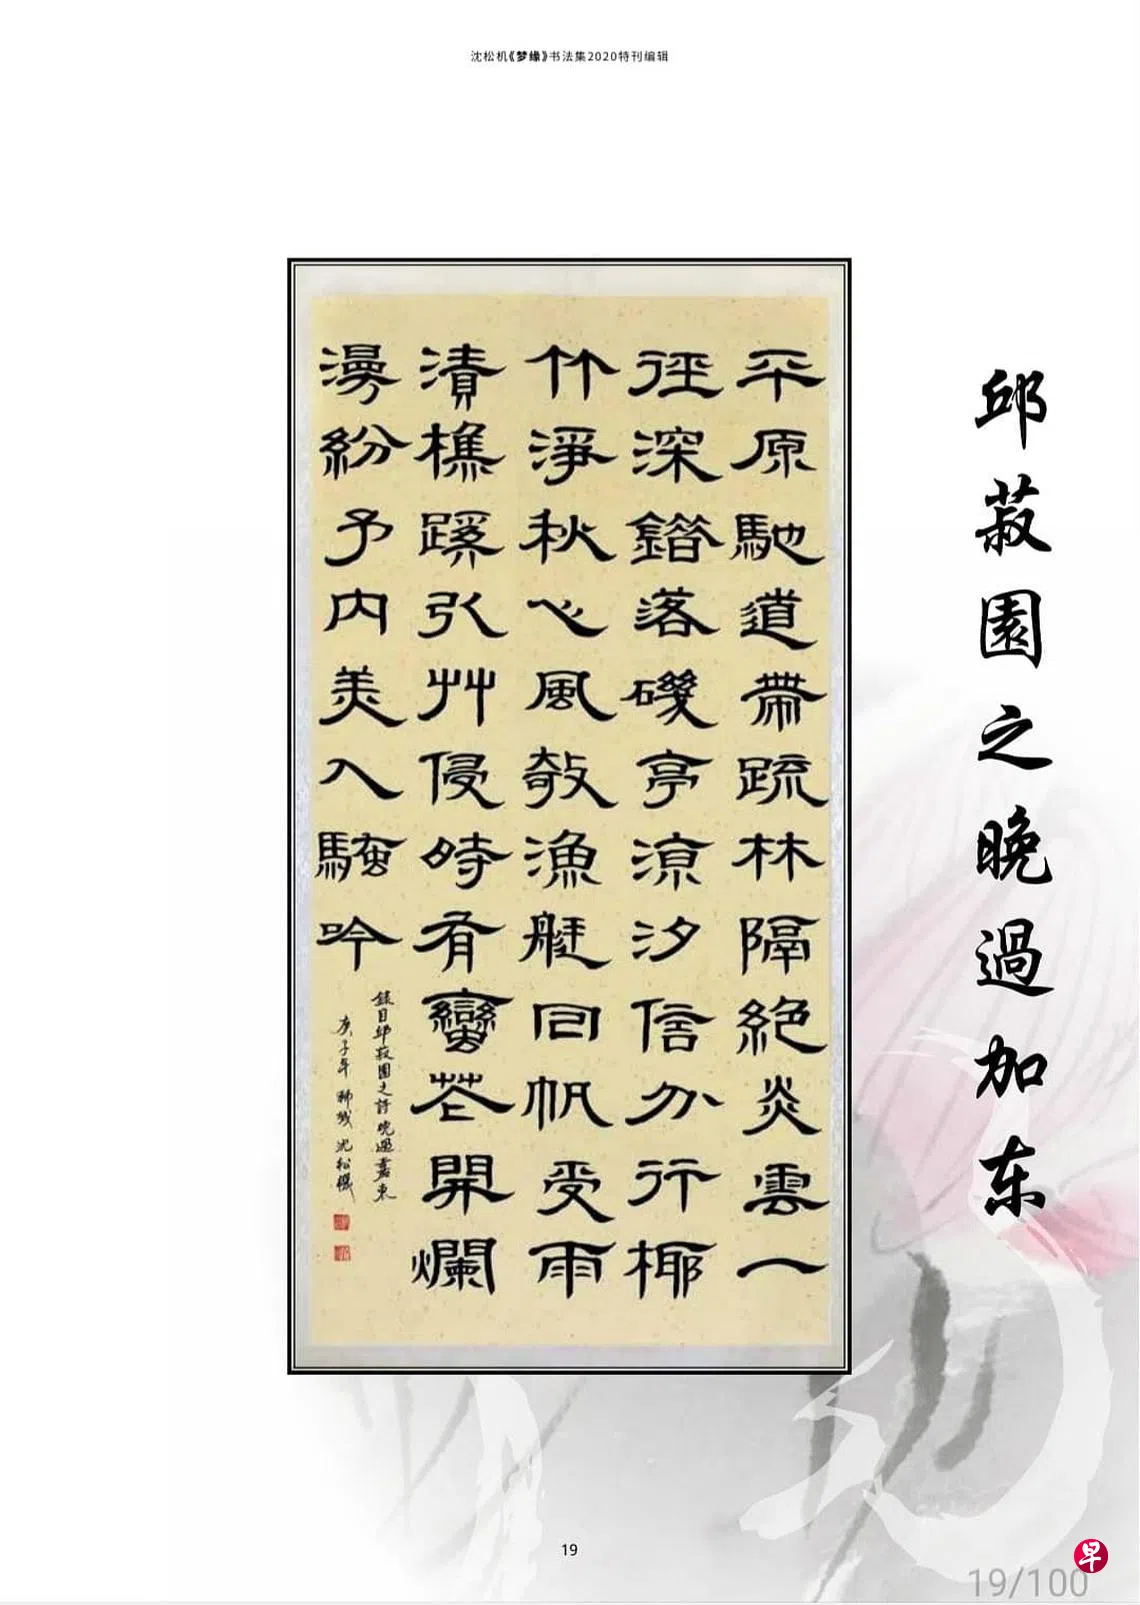 沈松机《梦缘》书法集2020特刊编辑
邱菽園之晚過加东
平原馳道帶疏林隔絕炎雲一
徑深錯落磯亭涼汐信分行椰
竹淨秋心風敧漁艇回帆受雨
漬樵蹊引艸侵時有蠻花開爛
漫紛予內美入騷吟
錄自邱菽園之詩晚過嘉東
庚子年 沈松機
19
早
19/100